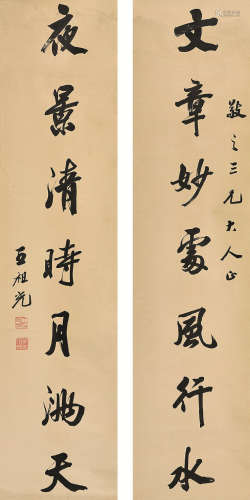 敬之三兄大人正
文章妙處風行水
夜景清時月滿天
祖光